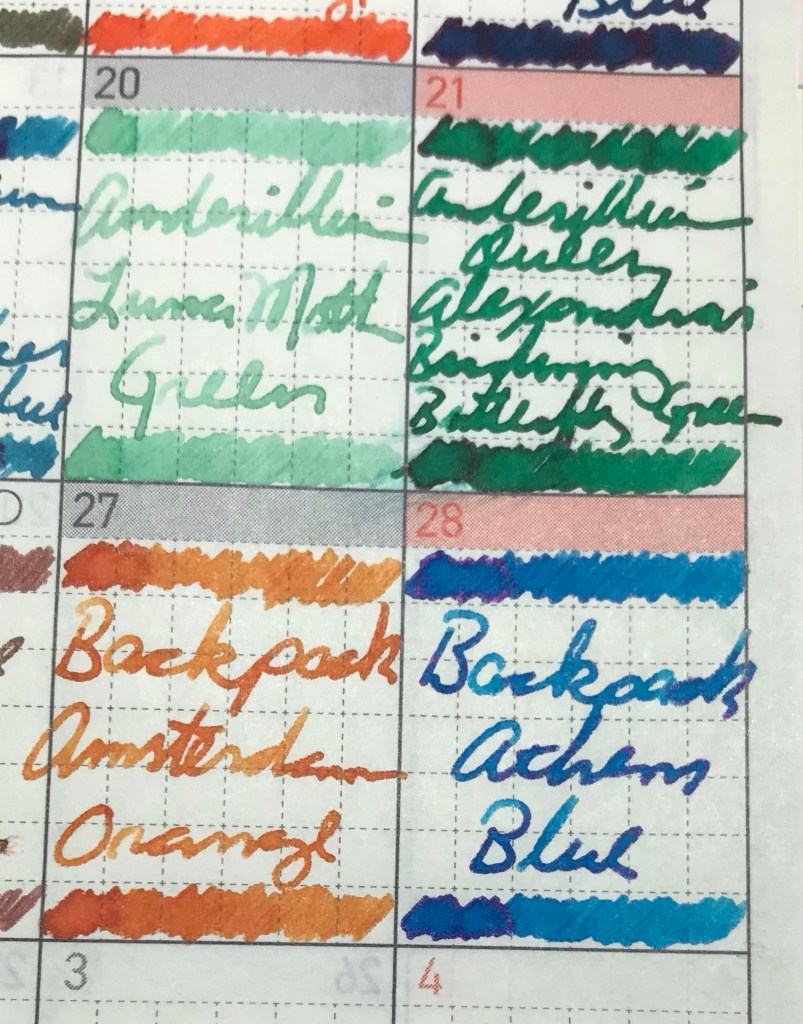 Blue
20
Anderillium
Luna Moth
Green
21
Anderillium
Queen
Alexandra's
Birdwing
Butterfly Green
27
Backpack
Amsterdam
Orange
28
Backpack
Athens
Blue
3
4